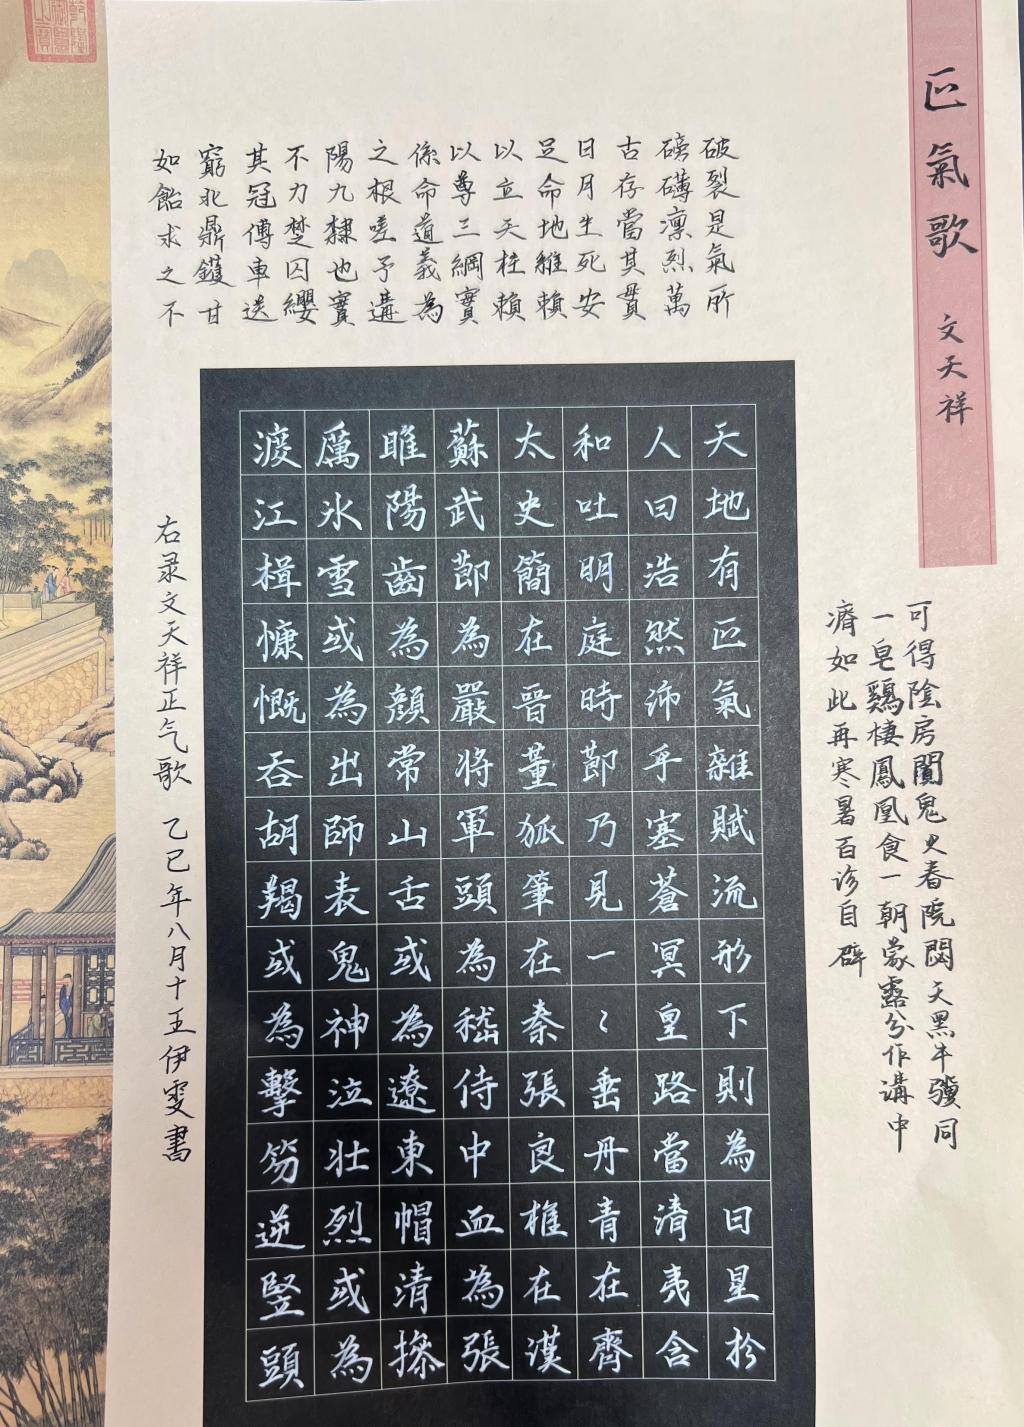 正氣歌 文天祥
破裂是氣所
磅礴凛烈萬
古存當其貫
日月生死安
足命地維賴
以立天柱賴
以尊三綱實
係命道義為
之根嗟予遘
陽九隸也實
不力楚囚纓
其冠傳車送
窮北鼎鑊甘
如飴求之不
天地有正氣雜賦流形下則為日星於
人曰浩然沛乎塞蒼冥皇路當清夷含
和吐明庭時節乃見一〻垂丹青在齊
太史簡在晉董狐筆在秦張良椎在漢
蘇武節為嚴將軍頭為嵇侍中血為張
睢陽齒為顏常山舌或為遼東帽清操
厲氷雪或為出師表鬼神泣壯烈或為
渡江楫慷慨吞胡羯或為擊笏逆豎頭
可得陰房闃鬼火春院閟天黑牛驥同
一皂鷄棲鳳凰食一朝蒙露分作溝中
濟如此再寒暑百沴自辟
右录文天祥正气歌 乙巳年八月十王伊雯書